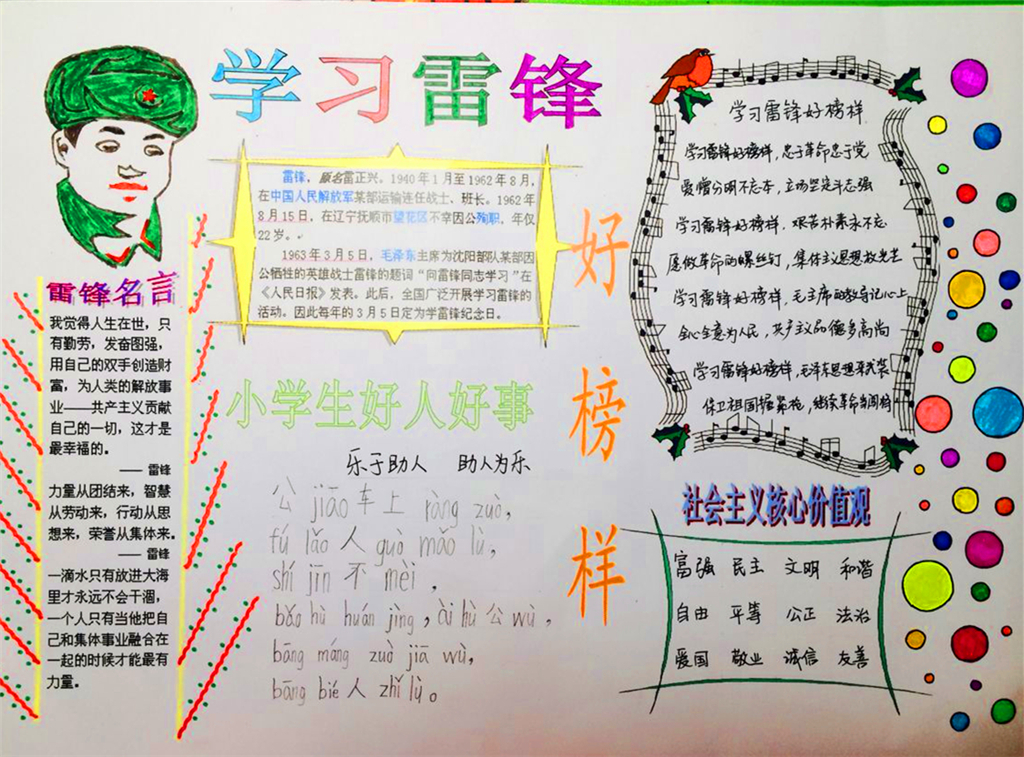 学习雷锋
雷锋名言
我觉得人生在世，只
有勤劳，发奋图强，
用自己的双手创造财
富，为人类的解放事
业——共产主义贡献
自己的一切，这才是
最幸福的。
—— 雷锋
力量从团结来，智慧
从劳动来，行动从思
想来，荣誉从集体来。
—— 雷锋
一滴水只有放进大海
里才永远不会干涸，
一个人只有当他把自
己和集体事业融合在
一起的时候才能最有
力量。
雷锋，原名雷正兴。1940 年 1 月至 1962 年 8 月，
在中国人民解放军某部运输连任战士、班长。1962 年
8 月 15 日，在辽宁抚顺市望花区不幸因公殉职，年仅
22 岁。
1963 年 3 月 5 日，毛泽东主席为沈阳部队某部因
公牺牲的英雄战士雷锋的题词“向雷锋同志学习”在
《人民日报》发表。此后，全国广泛开展学习雷锋的
活动。因此每年的 3 月 5 日定为学雷锋纪念日。
小学生好人好事
乐于助人 助人为乐
公 jiāo 车上 ràng zuò，
fú lǎo 人 guò mǎo lù，
shí jīn 不 mèi，
bǎo hù huán jìng，ài hù 公 wù，
bāng máng zuò jiā wù，
bāng bié 人 zhǐ lù。
好
榜
样
学习雷锋好榜样
学习雷锋好榜样，忠于革命忠于党
爱憎分明不忘本，立场坚定斗志强
学习雷锋好榜样，艰苦朴素永不忘
愿做革命的螺丝钉，集体主义思想放光芒
学习雷锋好榜样，毛主席的教导记心上
全心全意为人民，共产主义品德多高尚
学习雷锋好榜样，毛泽东思想来武装
保卫祖国握紧枪，继续革命当闯将
社会主义核心价值观
富强 民主 文明 和谐
自由 平等 公正 法治
爱国 敬业 诚信 友善